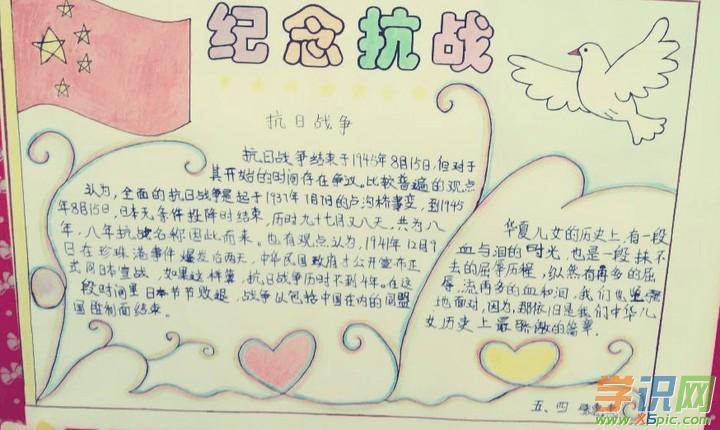 纪念抗战
抗日战争
抗日战争结束于1945年8月15日,但对于
其开始的时间存在争议。比较普遍的观点
认为,全面的抗日战争是起于1937年7月7日的卢沟桥事变,到1945
年8月15日,日本无条件投降时结束,历时九十七月又八天,共为八
年,八年抗战名称因此而来。也有观点认为,1941年12月9
日在珍珠港事件爆发后两天,中华民国政府才公开宣布正
式向日本宣战,如果这样算,抗日战争历时不到4年。在这
段时间里日本节节败退,战争以包括中国在内的同盟
国胜利而结束。
华夏儿女的历史上,有一段
血与泪的时光,也是一段抹不
去的屈辱历程,纵然有再多的屈
辱,流再多的血和泪,我们也坚强
地面对,因为,那依旧是我们中华儿
女历史上最骄傲的篇章.
五、四
学识网
www.X5pic.com